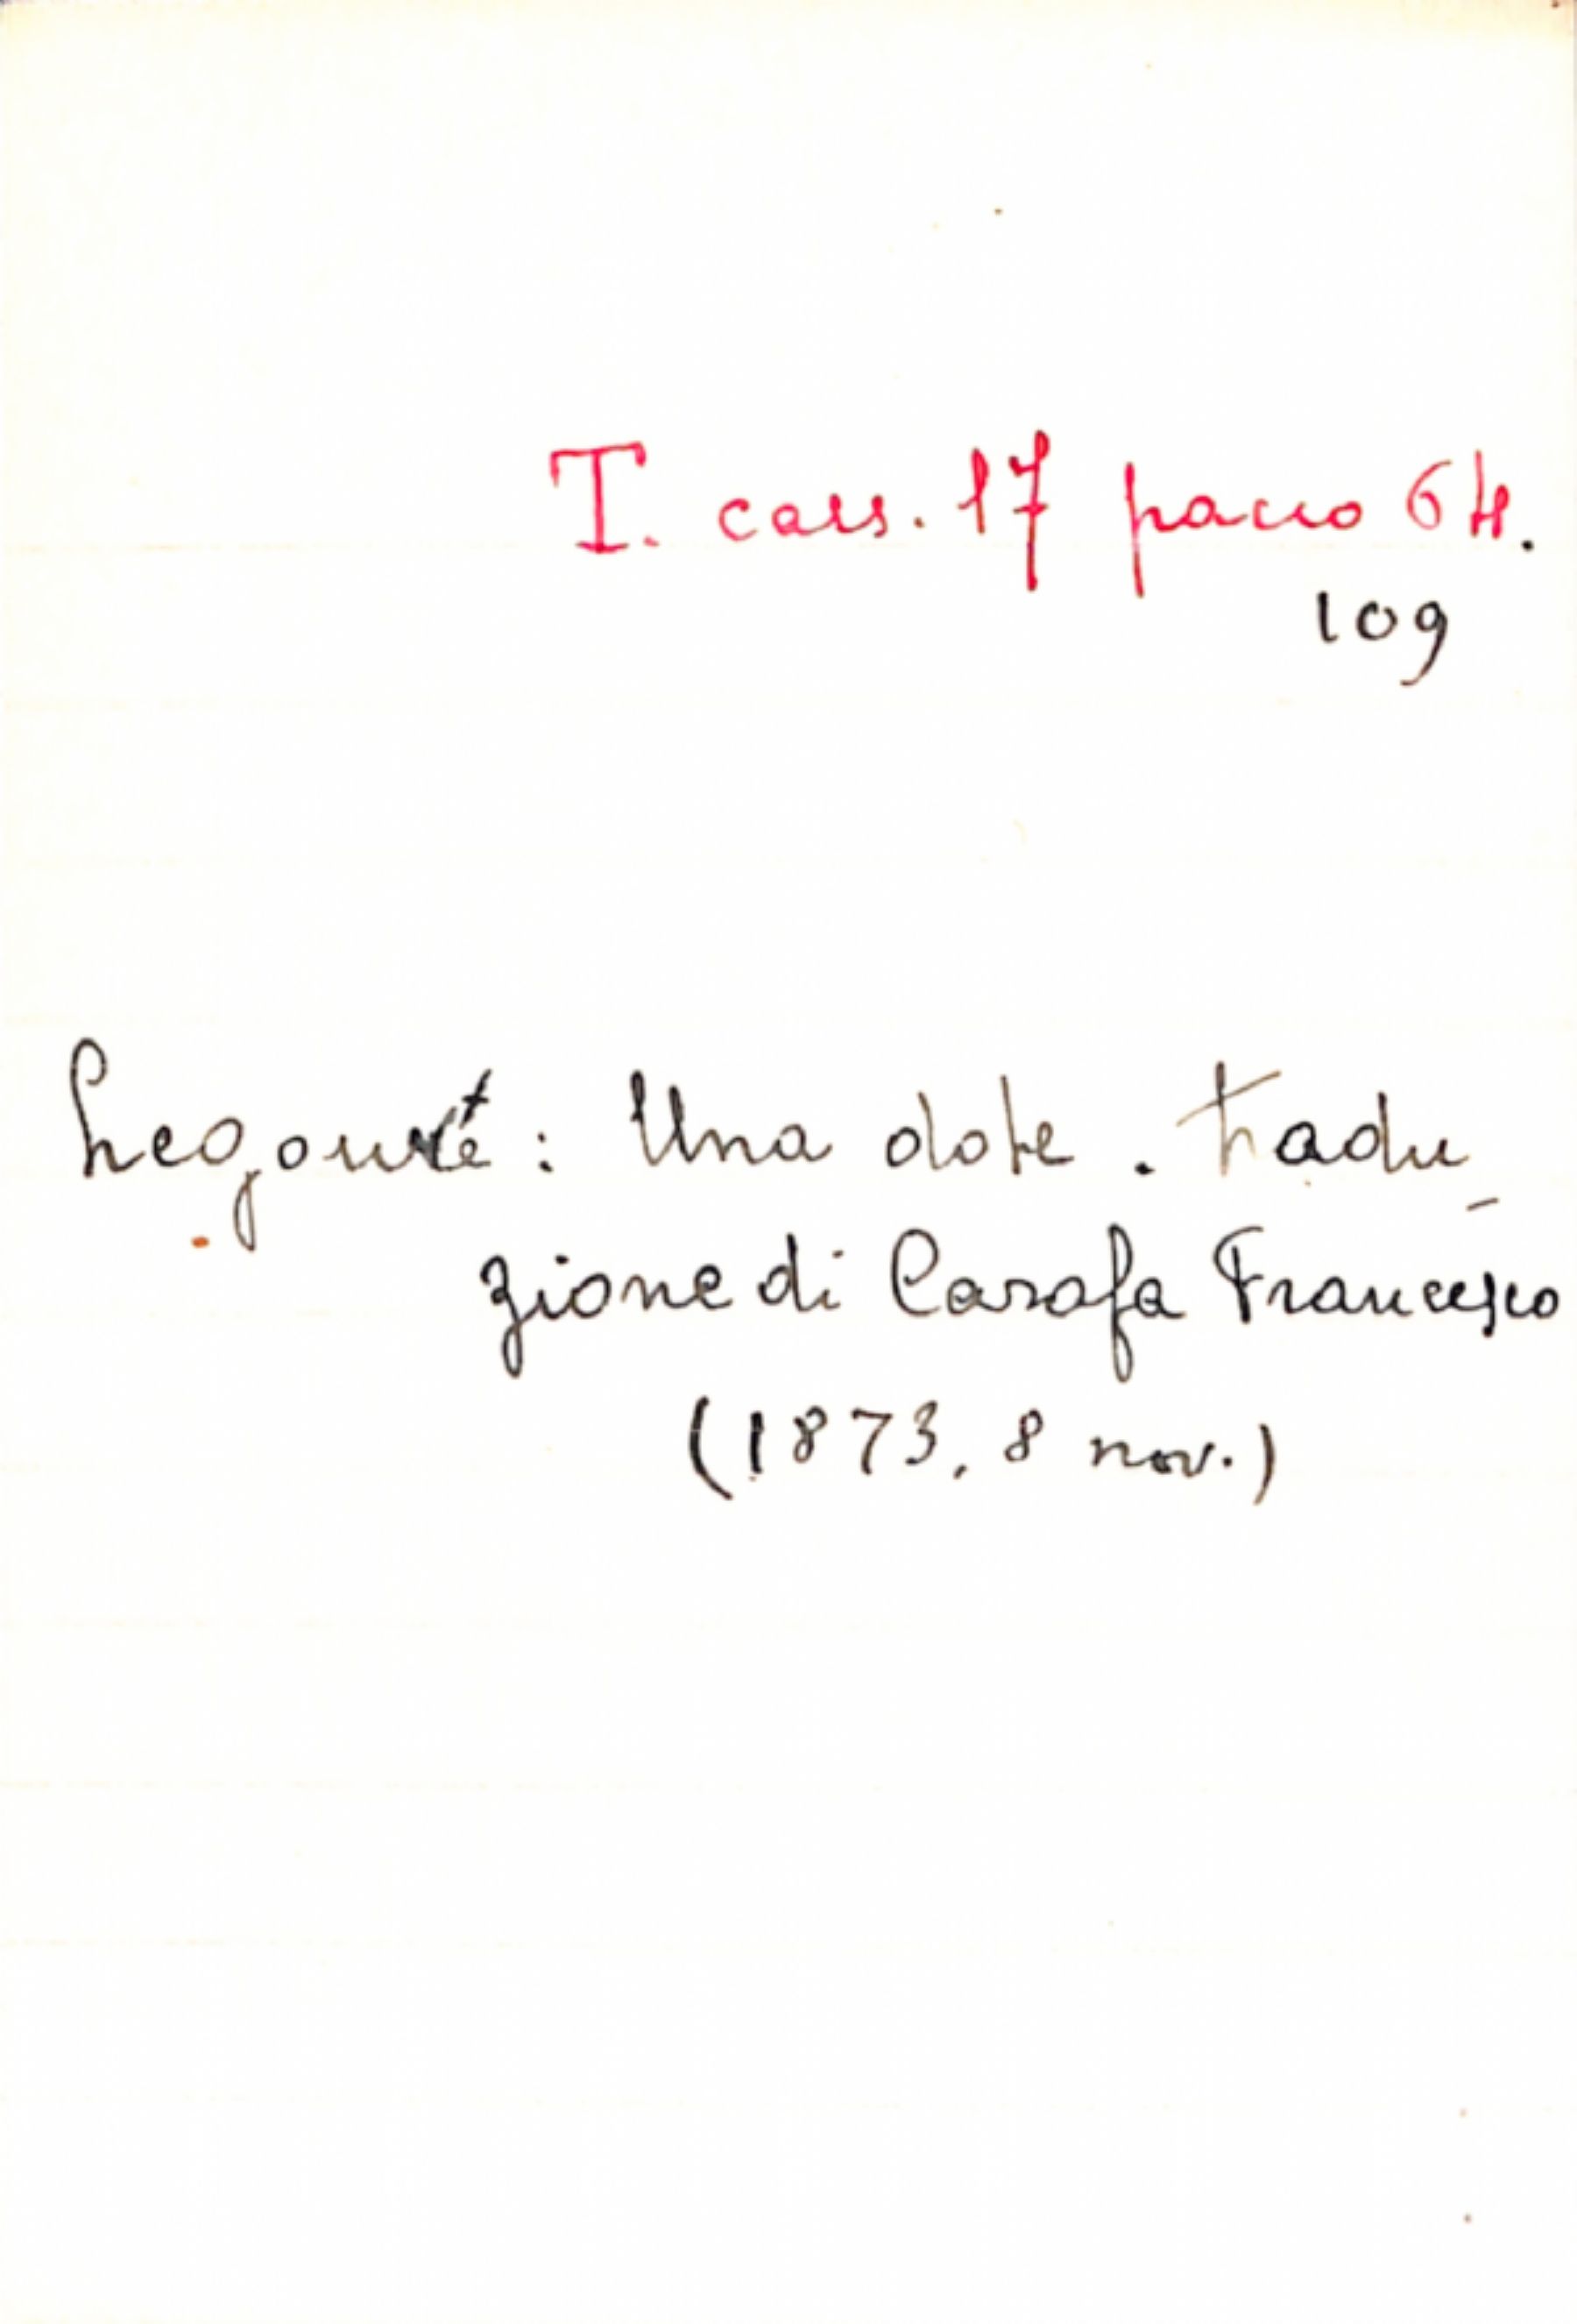 T. cass. 17 pacco 64.
109
Legouvé: Una dote. Tradu_
zione di Carafa Francesco
(1873, 8 nov.)